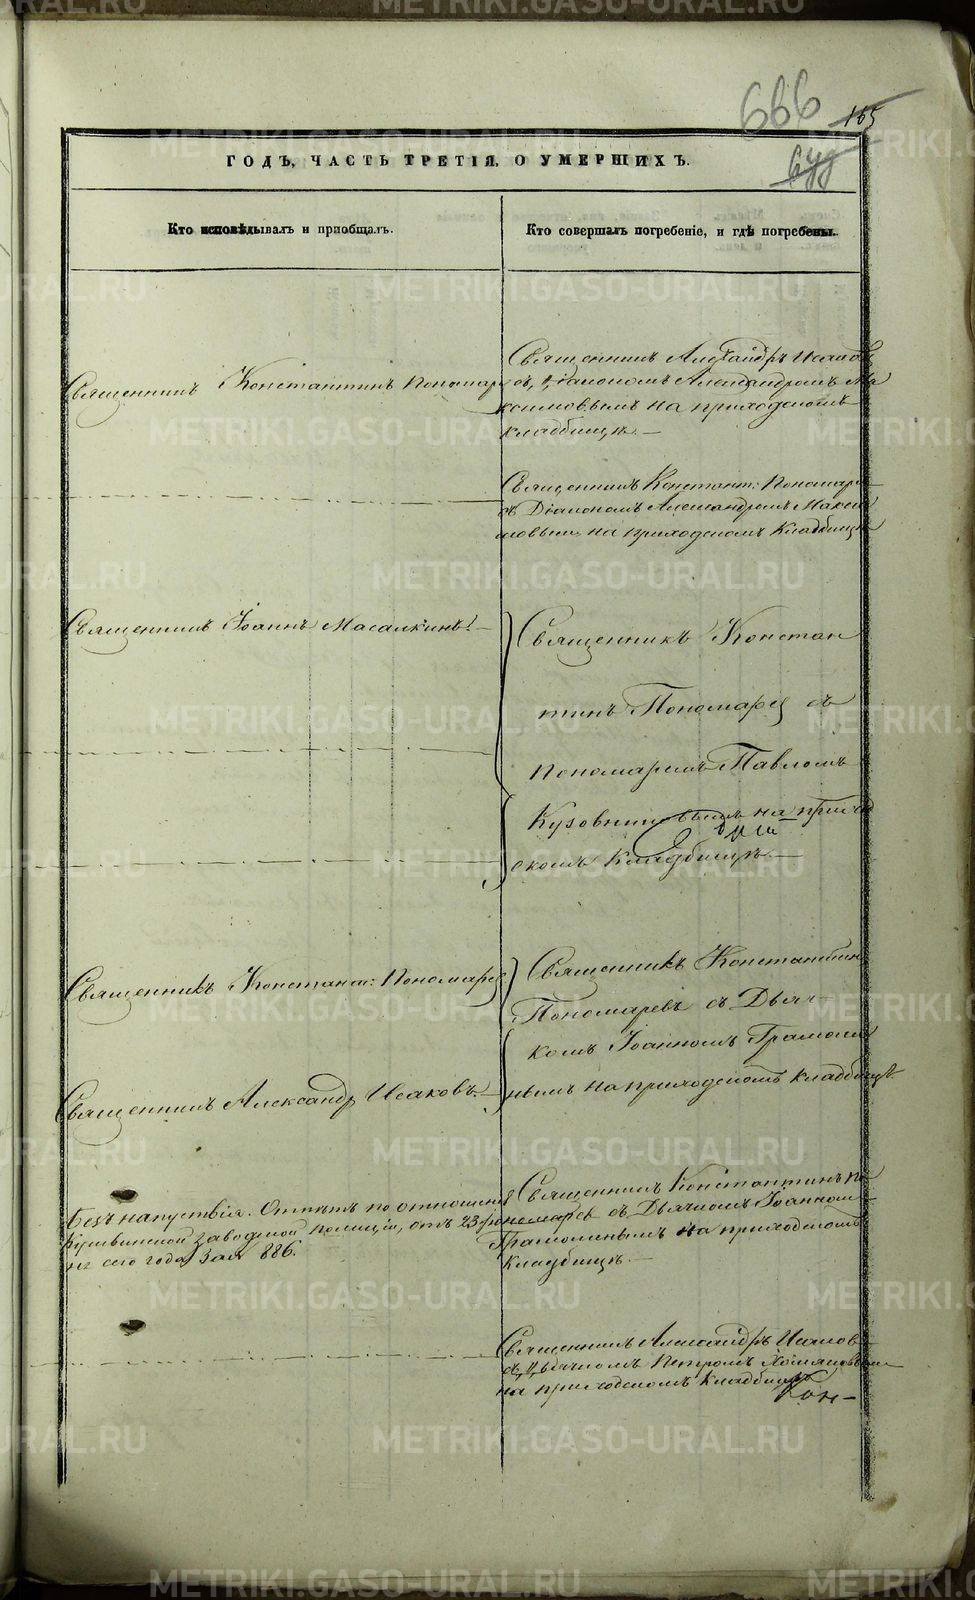 666
165
ГОДЪ, ЧАСТЬ ТРЕТІЯ, О УМЕРШИХЪ.
Кто исповѣдывалъ и пріобщалъ.
Кто совершалъ погребеніе, и гдѣ погребены.
Священникъ Константинъ Пономарев
Священникъ Александръ Исаковъ
съ Діакономъ Александромъ Ма
ксимовымъ на приходскомъ
кладбищѣ. —
Священникъ Констант: Пономарев
съ Діакономъ Александромъ Макси
мовымъ на приходскомъ Кладбищѣ
Священникъ Іоаннъ Масалкинъ! —
Священникъ Констан
тинъ Пономарев съ
пономаремъ Павломъ
Кузовниковымъ на приход
скомъ Кладбищѣ —
Священникъ Констант: Пономарев
Священникъ Константин
Пономаревъ съ Дьяч
комъ Іоанномъ Грамоли
нымъ на приходскомъ кладбищѣ
Священникъ Александр Исаковъ. —
Безъ напутствія. Отпѣтъ по отношенію
Кушвинской заводской полиціи, отъ 23
сего года за № 886.
Священникъ Константинъ По
номарев съ Дьячкомъ Іоанномъ
Грамолинымъ на приходскомъ
Кладбищѣ. —
Священникъ Александръ Исаков
съ Дьячкомъ Петромъ Хомяковымъ
на приходскомъ Кладбищѣ
METRIKI.GASO-URAL.RU